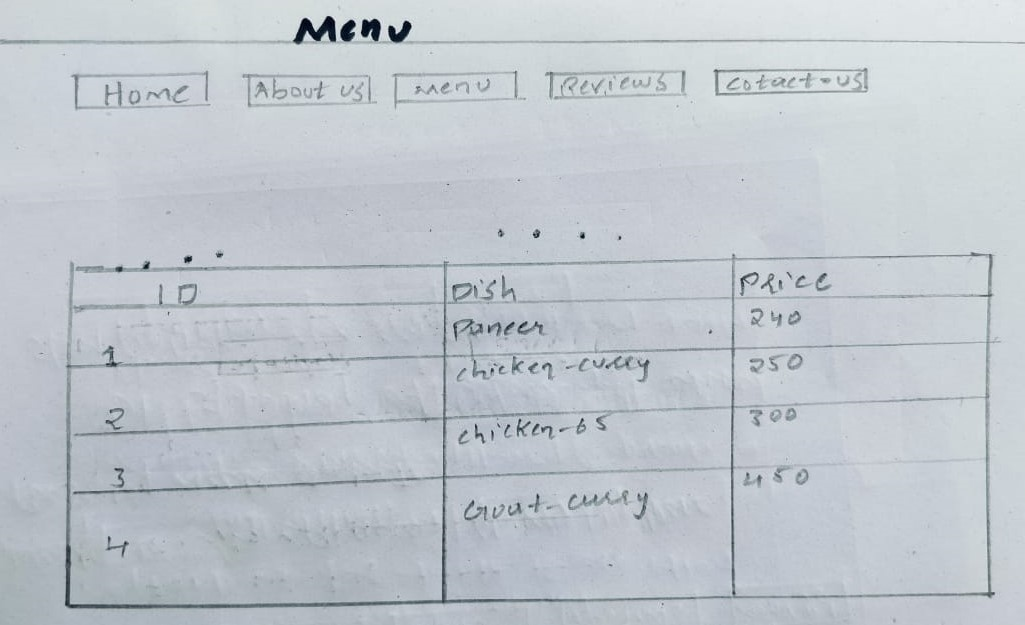 Menu
Home About us Menu Reviews Cotact-us
ID Dish Price
1 Paneer 240
2 chicken-curry 250
3 chicken-65 300
4 Goat-curry 450